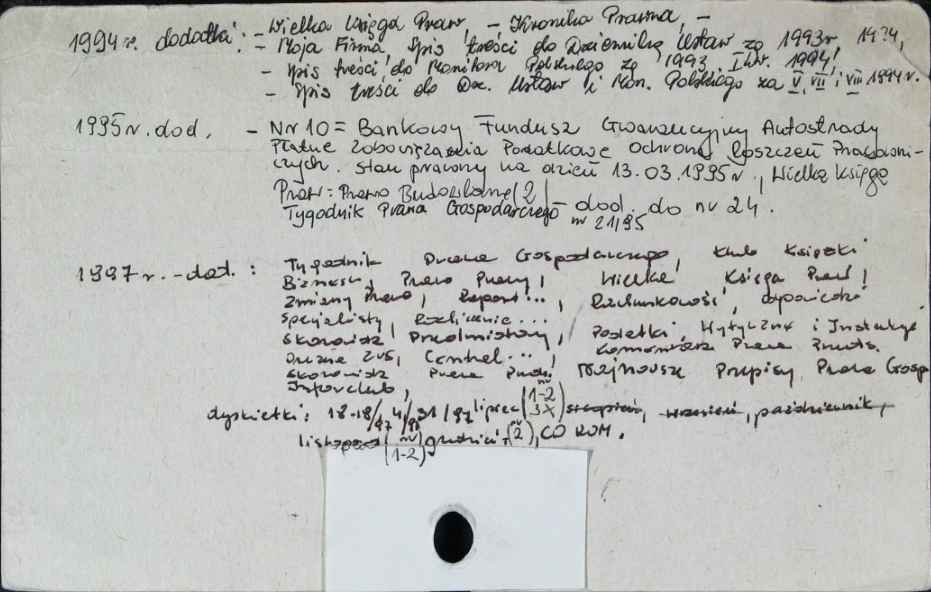 1994 r. dodatki: - Wielka Księga Praw, - Kronika Prawna, -
- Moja Firma, Spis treści do Dziennika Ustaw za 1993r 1994,
- Spis treści do Monitora Polskiego za 1993, I kw. 1994,
- Spis treści do Dz. Ustaw i Mon. Polskiego za V, VII i VIII 1994 r.
1995 r. dod. - Nr 10 = Bankowy Fundusz Gwarancyjny Autostrady
Płatne Zobowiązania Podatkowe Ochrona Roszczeń Pracowni-
czych. stan prawny na dzień 13.03.1995 r., Wielka Księga
Praw: Prawo Budowlane (2)
Tygodnik Prawa Gospodarczego - dod. do nr 24.
nr 21/95
1997 r. - dod.: Tygodnik Prawa Gospodarczego, Klub Książki
Biznesu, Prawo Pracy, Wielka Księga Praw,
Zmiany Prawo, Raport..., Rachunkowość, odpowiedzi
specjalisty, Rozliczenie...
Skorowidz Przedmiotowy, Podatki, Wytyczne i Instrukcje
ZUS, Control..., Komentarz Prawa
Skorowidz Prawa Najnowsze Przepisy, Prawo Gosp
Inforclub,
dyskietki: lipiec (nr 1-2 3x) sierpień, wrzesień, październik,
listopad (nr 1-2) grudzień (nr 2), CD ROM.